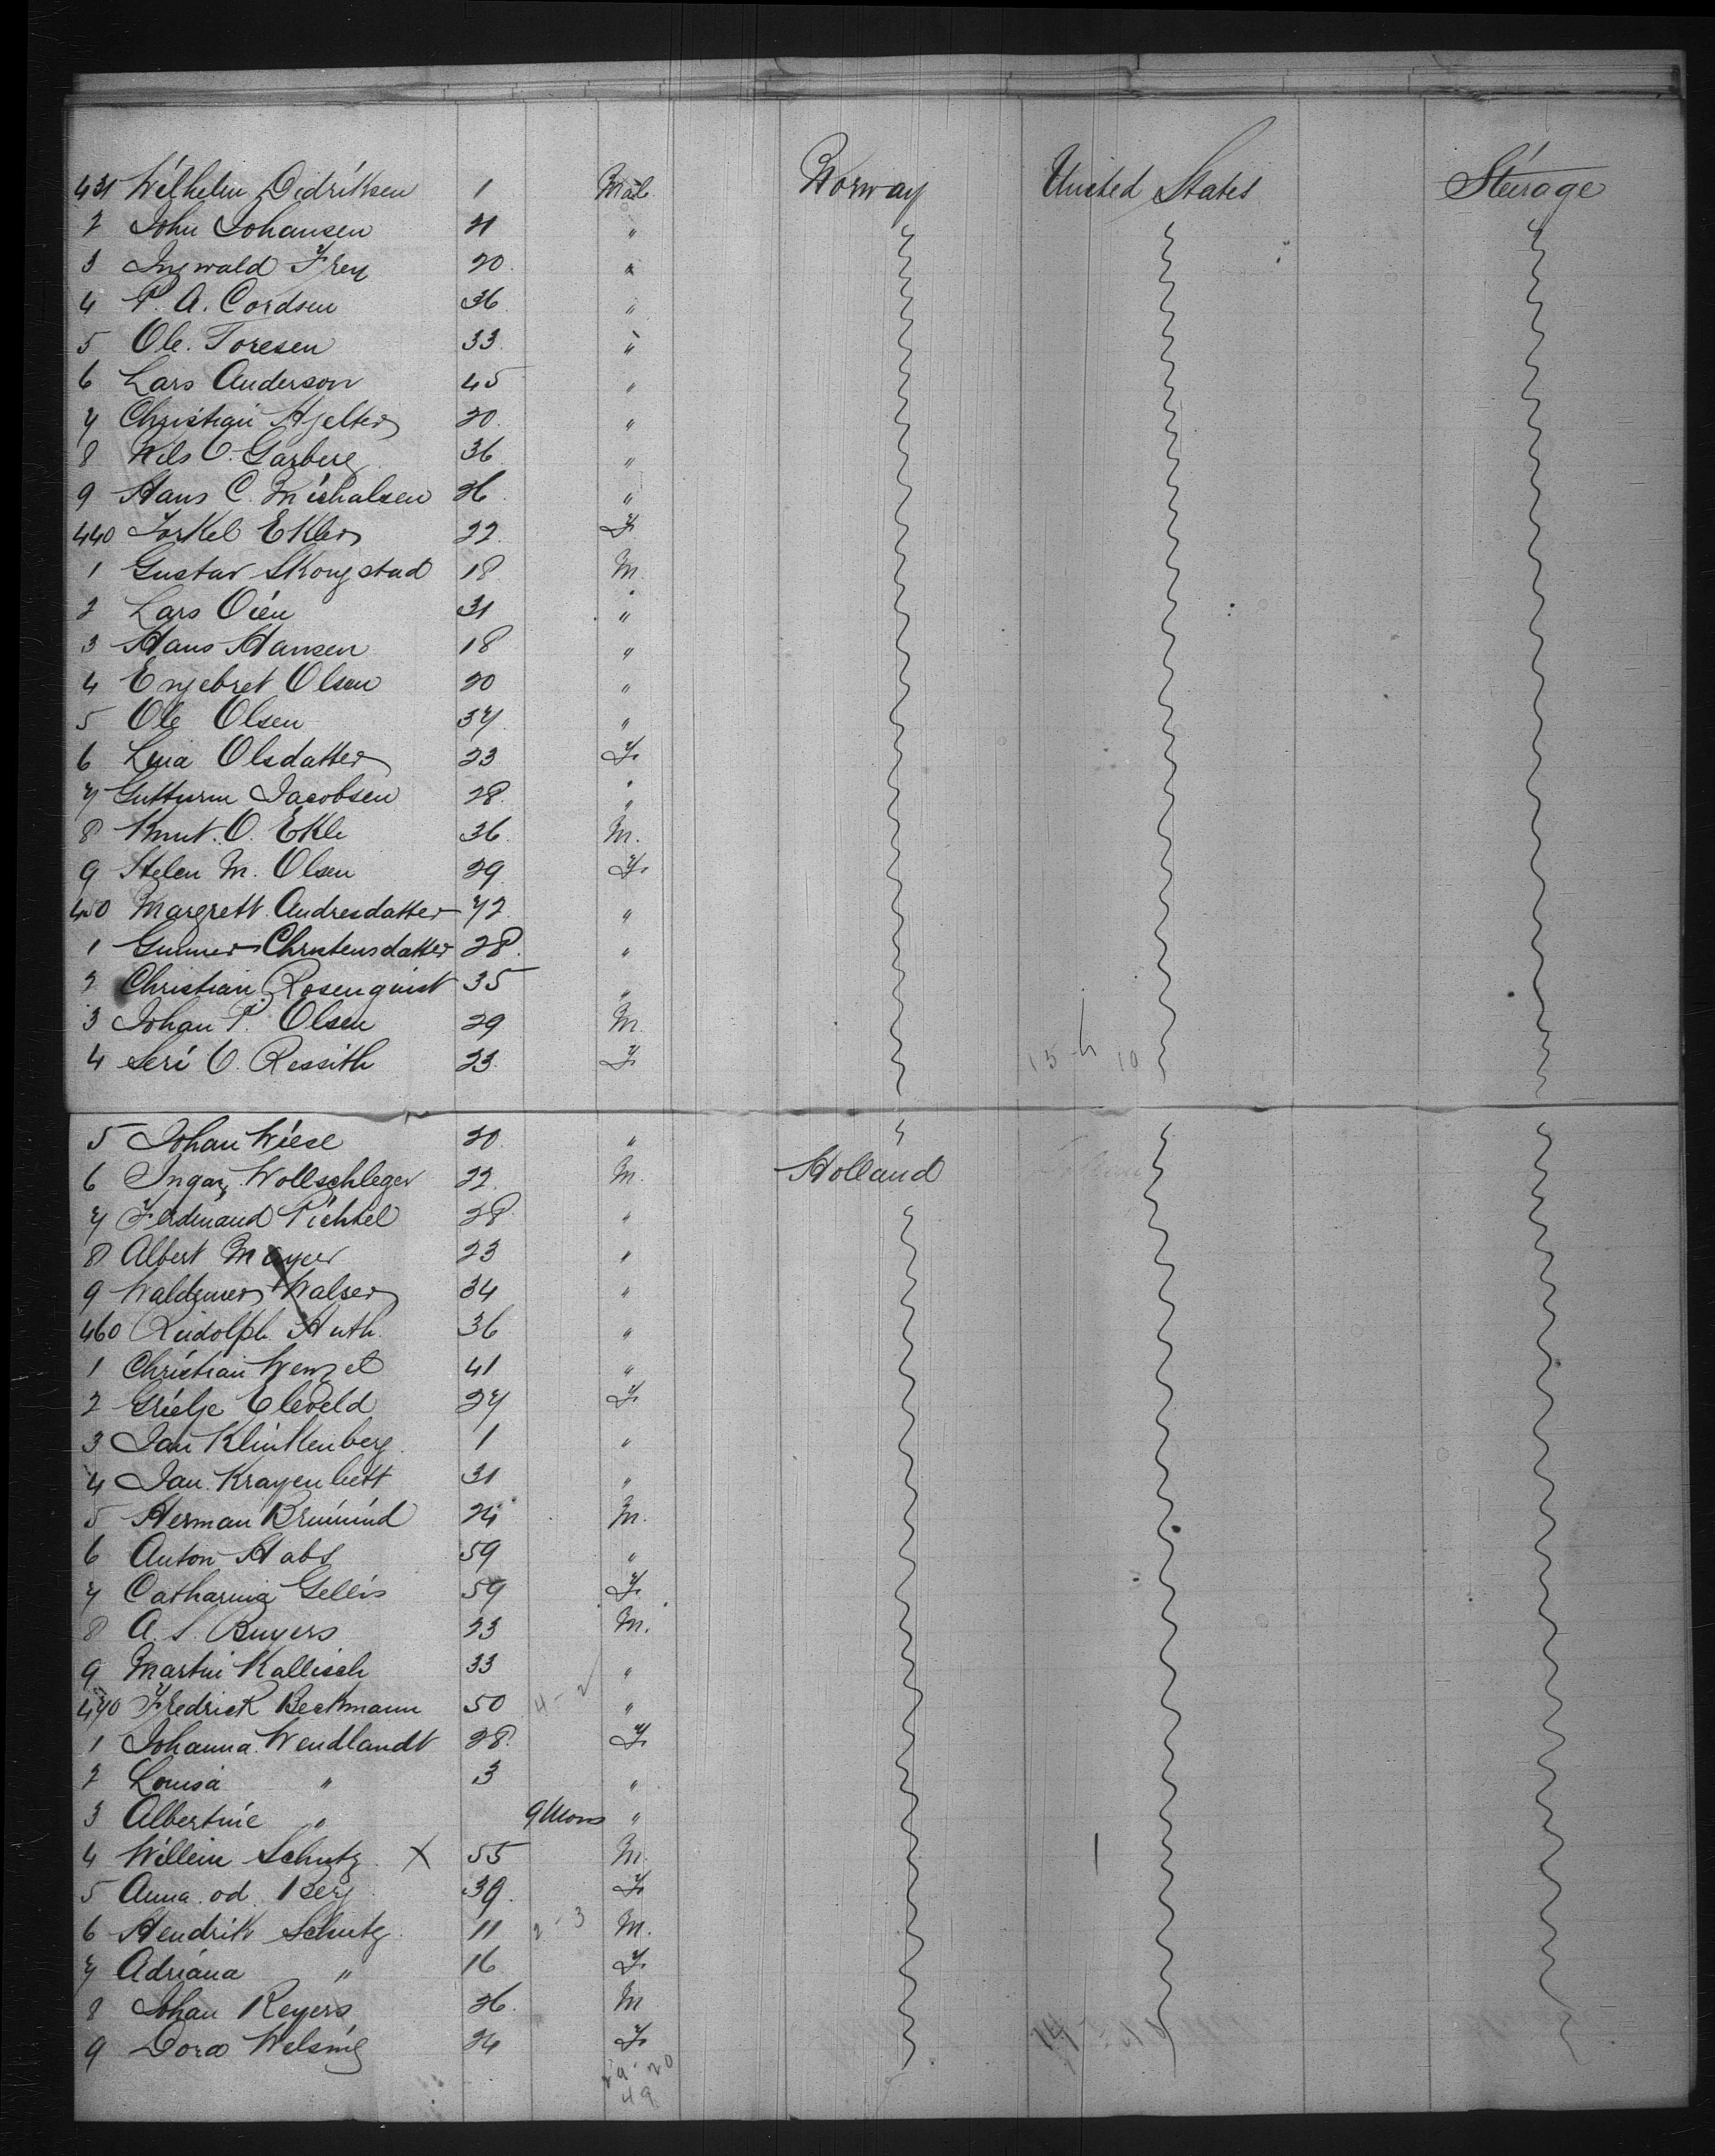 431 Wilhelm Didriksen 1 Male Norway United States Steirage
2 John Johansen 21 "
3 Ingwald Frey 20 "
4 P. A. Cordsen 36 "
5 Ole Toresen 33 "
6 Lars Anderson 45 "
7 Christian Hjelter 20 "
8 Nils O. Garberg 36 "
9 Hans C. Michalsen 26 "
440 Torkel Ekler 22 F
1 Gustav Skongstad 18 M
2 Lars Oien 31 "
3 Hans Hansen 18 "
4 Engebret Olsen 20 "
5 Ole Olsen 37 "
6 Lina Olsdatter 23 F
7 Gutturm Jacobsen 28 "
8 Knut O. Ekle 36 M.
9 Helen M. Olsen 29 F
450 Margrett Andresdatter 72 "
1 Gunner Christensdatter 28 "
2 Christian Rosenquist 35 "
3 Johan P. Olsen 29 M
4 Seri O. Ressith 23 F 15 - 10
5 Johan Wiese 20 "
6 Ingar Wollschleger 22 M. Holland
7 Ferdinand Pichtel 28 "
8 Albert Mayer 23 "
9 Waldemer Walser 34 "
460 Rudolph Huth 36 "
1 Christian Wenzel 41 "
2 Grietje Eleveld 27 F
3 Jan Klinkenberg 1 "
4 Jan Krayenbett 31 "
5 Herman 24 M.
6 Anton Habs 59 "
7 Catharina Gellis 59 F
8 A. S. Buyers 23 M.
9 Martin Kallisch 33 "
470 Fredrick Beckmann 50 4 - 2 "
1 Johanna Wendlandt 28 F
2 Louisa " 3 "
3 Albertine " 9 Mons "
4 Willem Schutz X 55 M
5 Anna od. Berg 39 F
6 Hendrik Schutz 11 2 - 3 M.
7 Adriana " 16 F
8 Johan Reyers 26 M
9 Dora Welsing 24 F
29 - 20
49